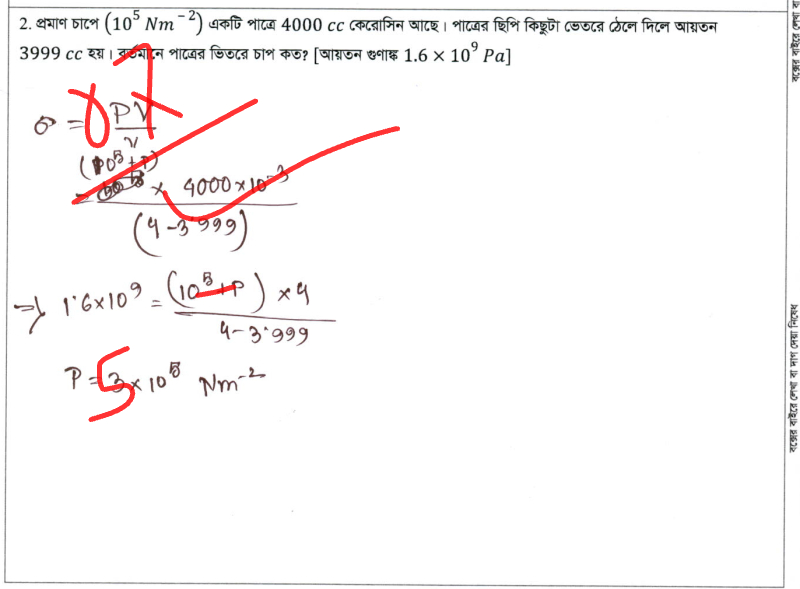 2. প্রমাণ চাপে (10⁵ Nm⁻²) একটি পাত্রে 4000 cc কেরোসিন আছে। পাত্রের ছিপি কিছুটা ভেতরে ঠেলে দিলে আয়তন
3999 cc হয়। বর্তমানে পাত্রের ভিতরে চাপ কত? [আয়তন গুণাঙ্ক 1.6 × 10⁹ Pa]
σ = PV / v
= (10⁵ + P) × 4000×10⁻³ / (4-3.999)
⇒ 1.6×10⁹ = (10⁵+P) × 4 / 4-3.999
P = 3×10⁵ Nm⁻²
5
বক্সের বাইরে লেখা বা
বক্সের বাইরে লেখা বা দাগ দেয়া নিষেধ